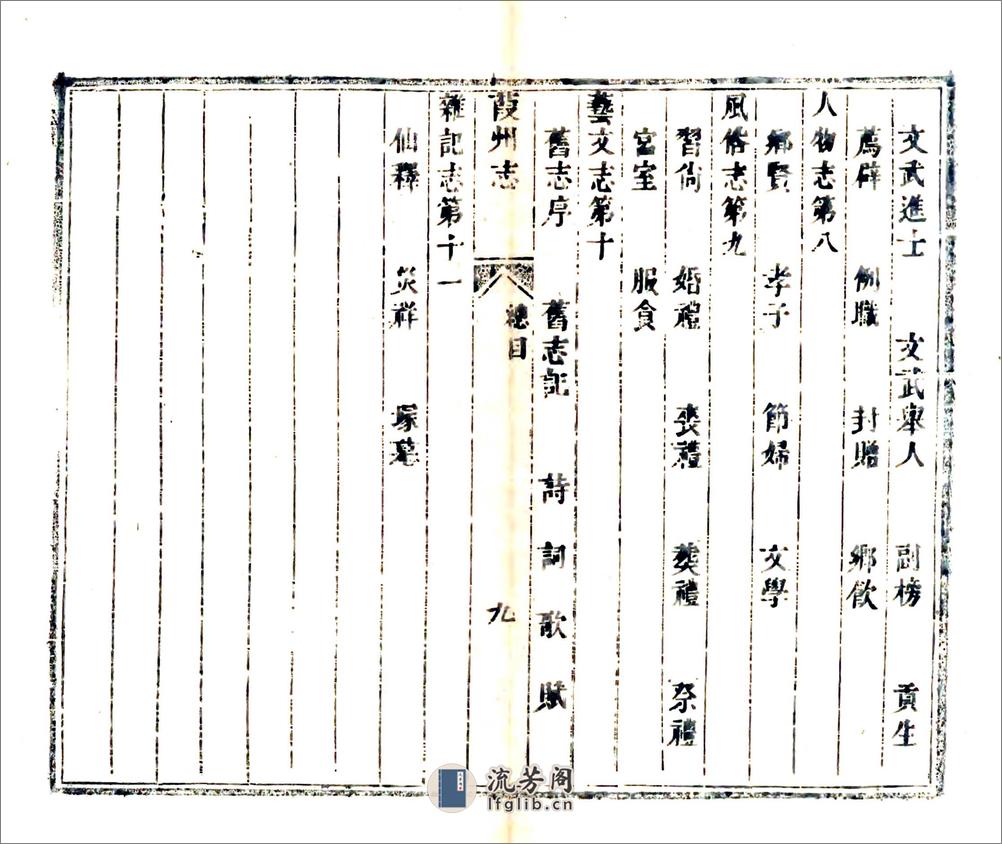 文武進士 文武舉人 副榜 貢生
薦辟 例職 封贈 鄉飲
人物志第八
鄉賢 孝子 節婦 文學
風俗志第九
習尚 婚禮 喪禮 葬禮 祭禮
宮室 服食
藝文志第十
舊志序 舊志記 詩 詞 歌 賦
葭州志 總目 九
雜記志第十一
仙釋 災祥 塚墓
流芳阁
lfglib.cn